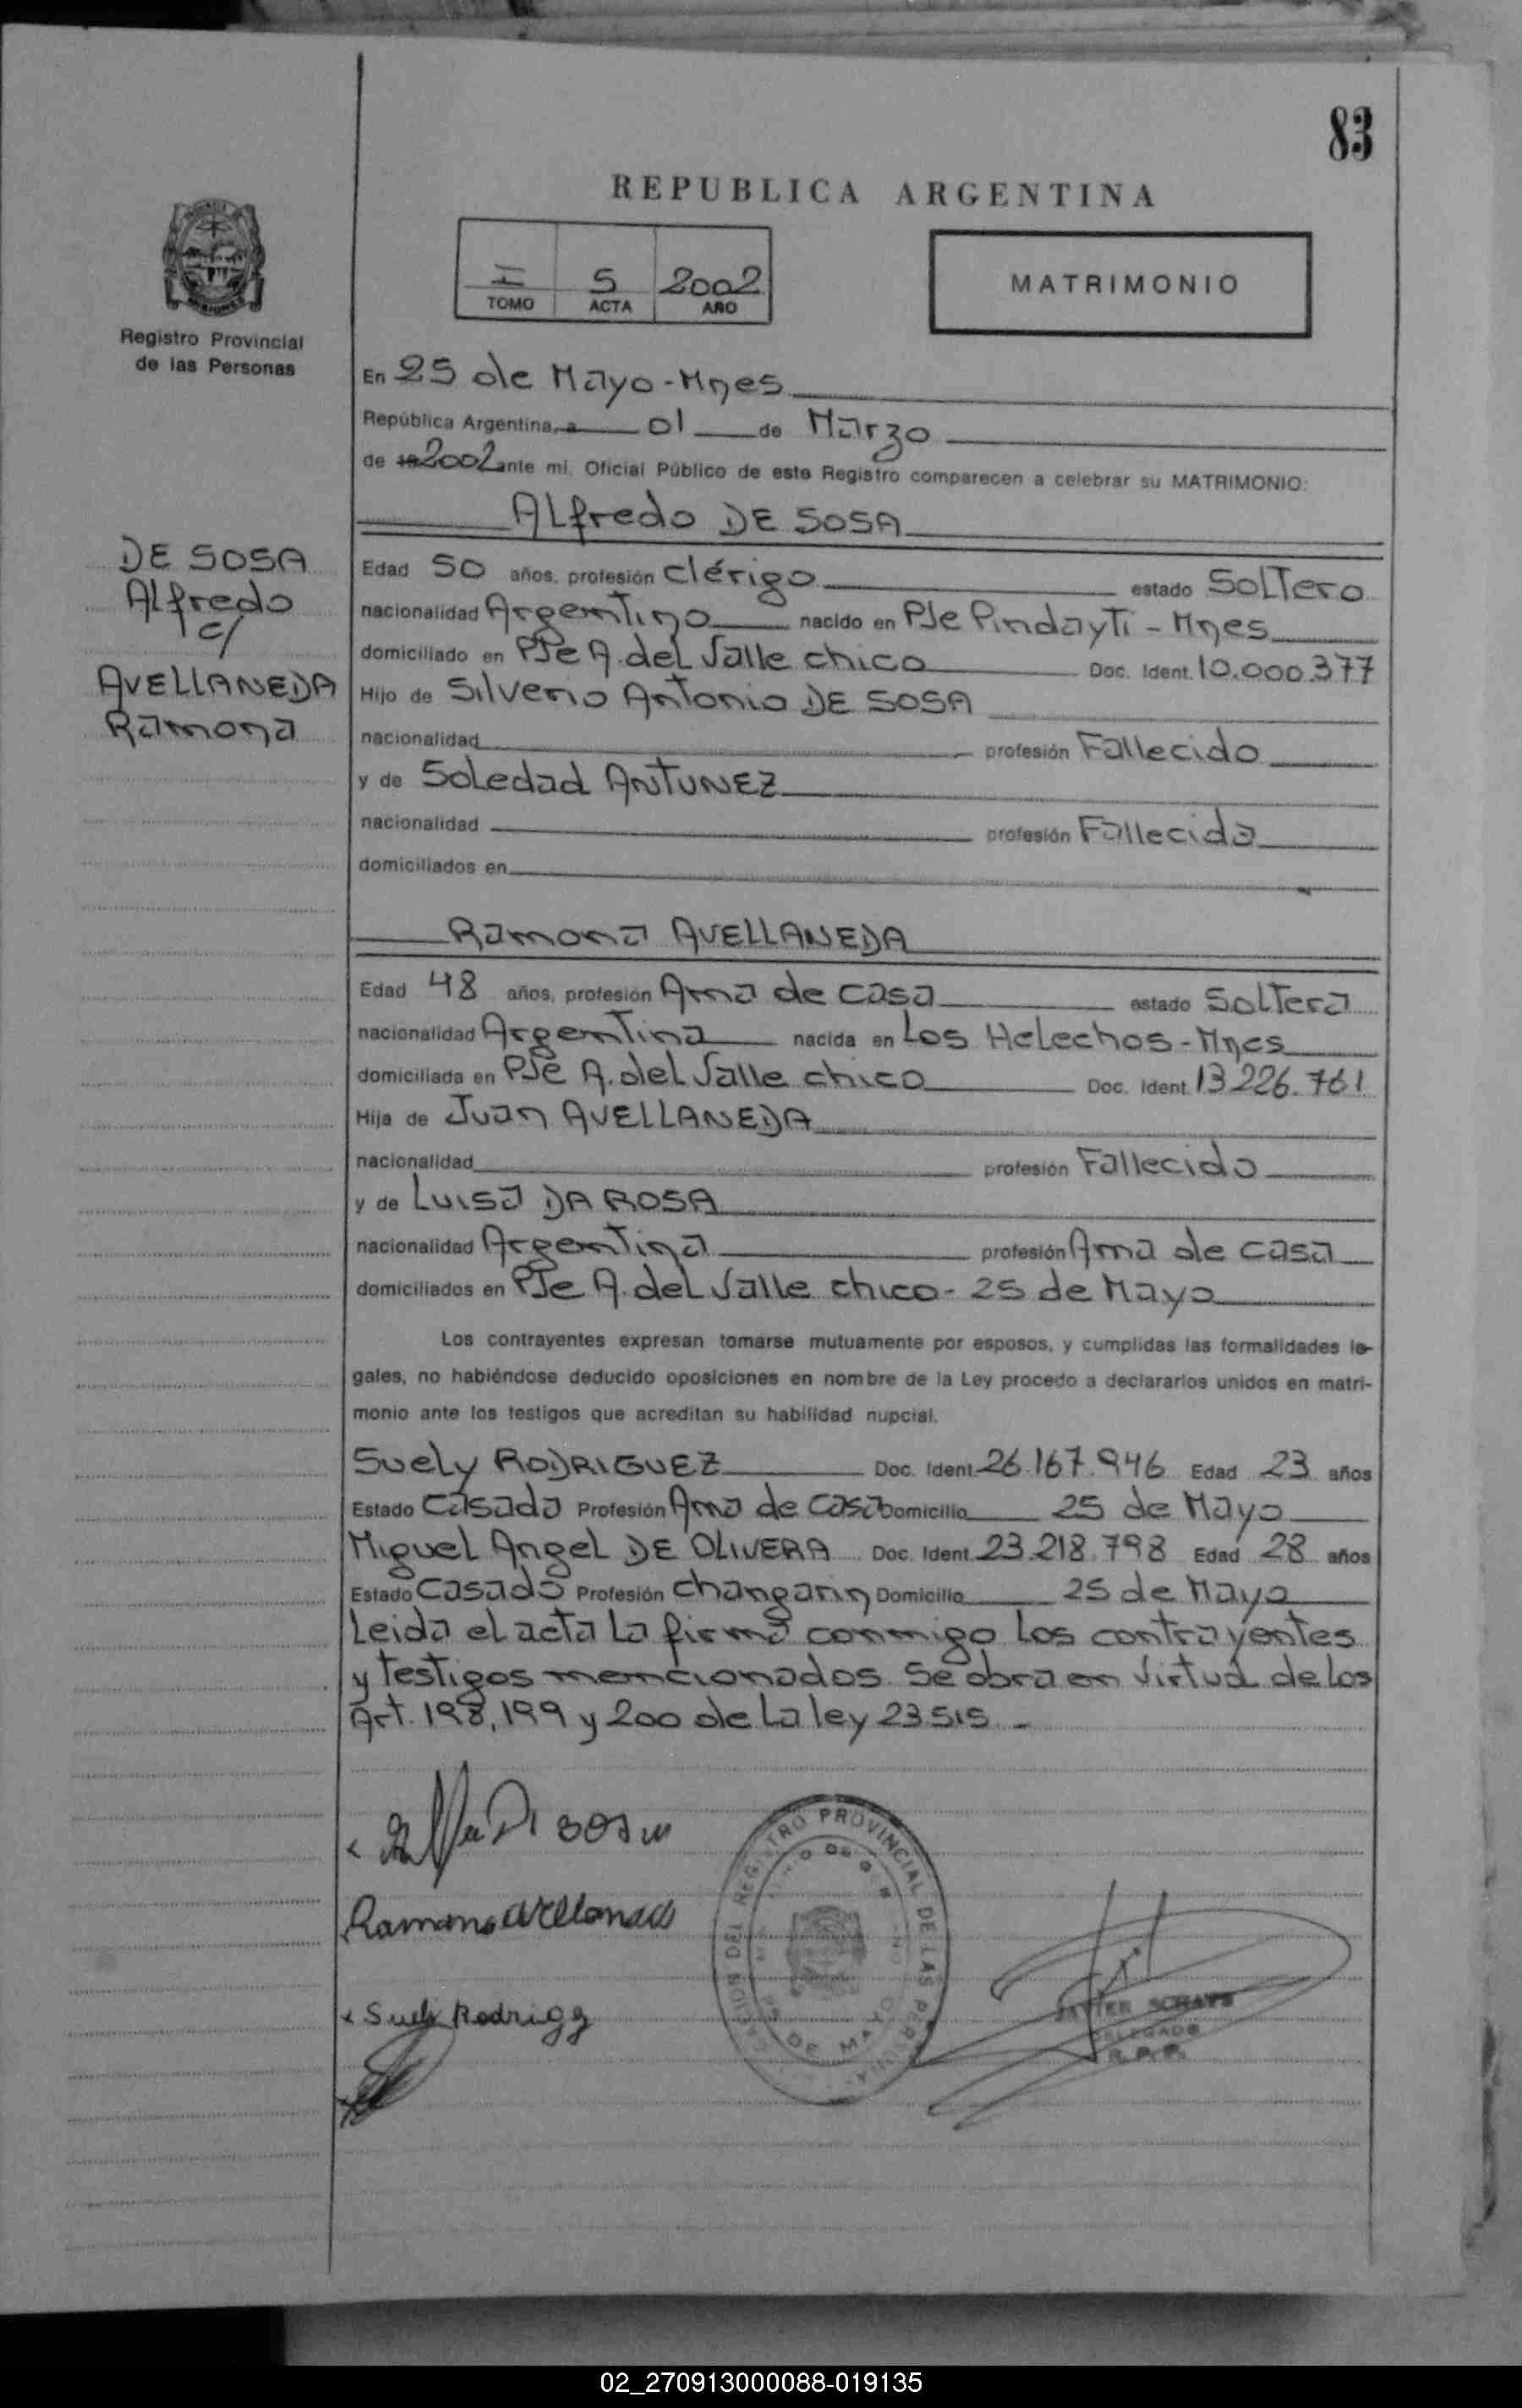 83
REPUBLICA ARGENTINA
I 5 2002
TOMO ACTA AÑO
MATRIMONIO
Registro Provincial
de las Personas
En 25 de Mayo-Mnes
República Argentina, a 01 de Marzo
de 19 2002 ante mi, Oficial Público de este Registro comparecen a celebrar su MATRIMONIO:
Alfredo DE SOSA
DE SOSA
Alfredo
c/
AVELLANEDA
Ramona
Edad 50 años, profesión Clérigo estado Soltero
nacionalidad Argentino nacido en Pje Pindayti - Mnes
domiciliado en Pje A. del Valle chico Doc. Ident. 10.000.377
Hijo de Silverio Antonio DE SOSA
nacionalidad profesión Fallecido
y de Soledad ANTUNEZ
nacionalidad profesión Fallecida
domiciliados en
Ramona AVELLANEDA
Edad 48 años, profesión Ama de casa estado Soltera
nacionalidad Argentina nacida en Los Helechos - Mnes
domiciliada en Pje A. del Valle chico Doc. Ident. 13.226.761
Hija de Juan AVELLANEDA
nacionalidad profesión Fallecido
y de Luisa DA ROSA
nacionalidad Argentina profesión Ama de casa
domiciliados en Pje A. del Valle chico - 25 de Mayo
Los contrayentes expresan tomarse mutuamente por esposos, y cumplidas las formalidades le-
gales, no habiéndose deducido oposiciones en nombre de la Ley procedo a declararlos unidos en matri-
monio ante los testigos que acreditan su habilidad nupcial.
Suely RODRIGUEZ Doc. Ident. 26.167.946 Edad 23 años
Estado Casada Profesión Ama de casa Domicilio 25 de Mayo
Miguel Angel DE OLIVERA Doc. Ident. 23.218.798 Edad 28 años
Estado Casado Profesión changarin Domicilio 25 de Mayo
Leida el acta la firma conmigo los contrayentes
y testigos mencionados. Se obra en virtud de los
Art. 198, 199 y 200 de la ley 23515.-
Ramona avellaneda
x Suely Rodrigz
REGISTRO PROVINCIAL DE LAS PERSONAS
25 DE MAYO
DELEGADO
R.P.P.
02_270913000088-019135